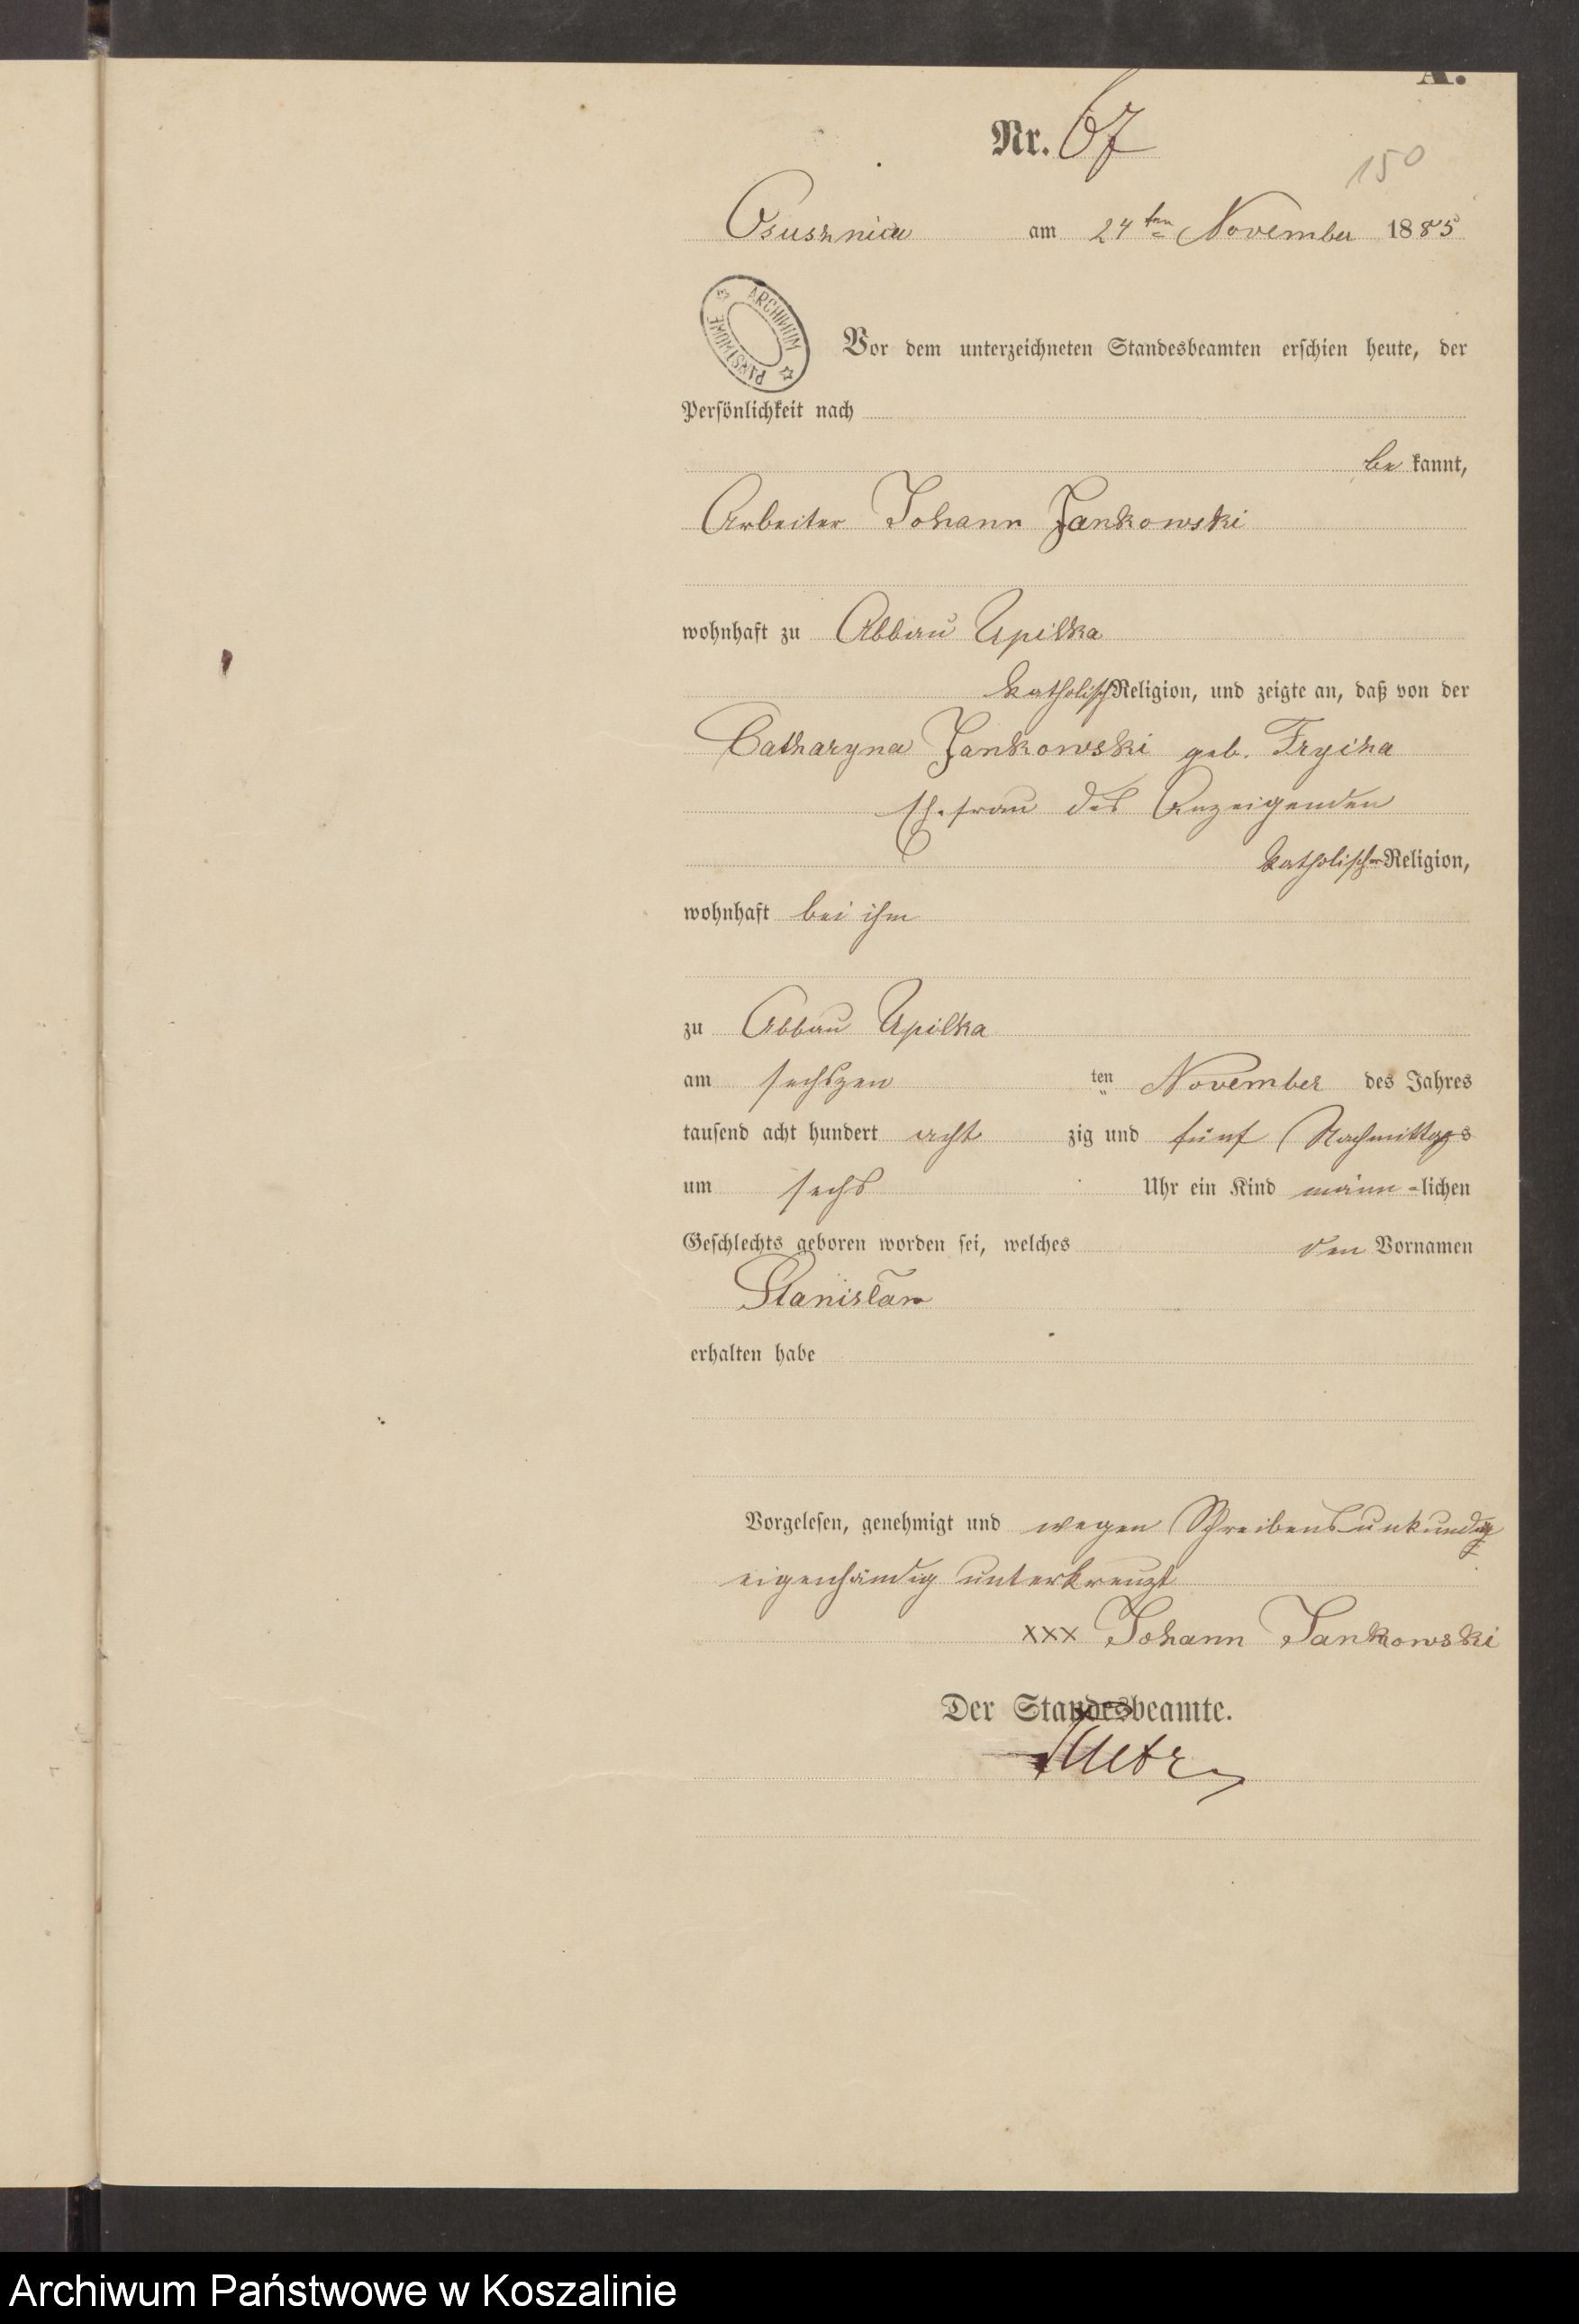 A.
Nr. 67
150
Osusznica am 24ten November 1885
ARCHIWUM PAŃSTWOWE
Vor dem unterzeichneten Standesbeamten erschien heute, der
Persönlichkeit nach
be kannt,
Arbeiter Johann Jankowski
wohnhaft zu Abbau Upilka
katholisch Religion, und zeigte an, daß von der
Catharyna Jankowski geb.
Ehefrau des Anzeigenden
katholischer Religion,
wohnhaft bei ihm
zu Abbau Upilka
am sechszen ten November des Jahres
tausend acht hundert acht zig und fünf Nachmittags
um sechs Uhr ein Kind männ-lichen
Geschlechts geboren worden sei, welches den Vornamen
Stanislaw
erhalten habe
Vorgelesen, genehmigt und wegen Schreibensunkundig
eigenhändig unterkreuzt
xxx Johann Jankowski
Der Standesbeamte.
Archiwum Państwowe w Koszalinie